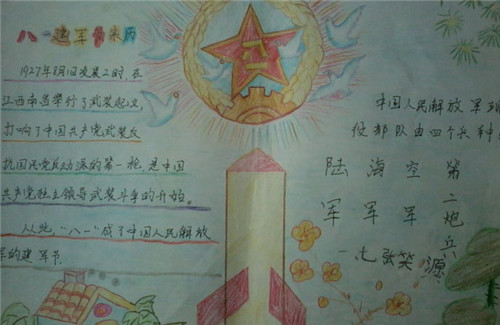 八一建军节来历
1927年8月1日凌晨2时,在
江西南昌举行了武装起义,
打响了中国共产党武装反
抗国民党反动派的第一枪,是中国
共产党独立领导武装斗争的开始。
从此“八一”成了中国人民解放
军的建军节。
八一
中国人民解放军和
使部队由四个兵种
陆军
海军
空军
第二炮兵
一.七 张笑源